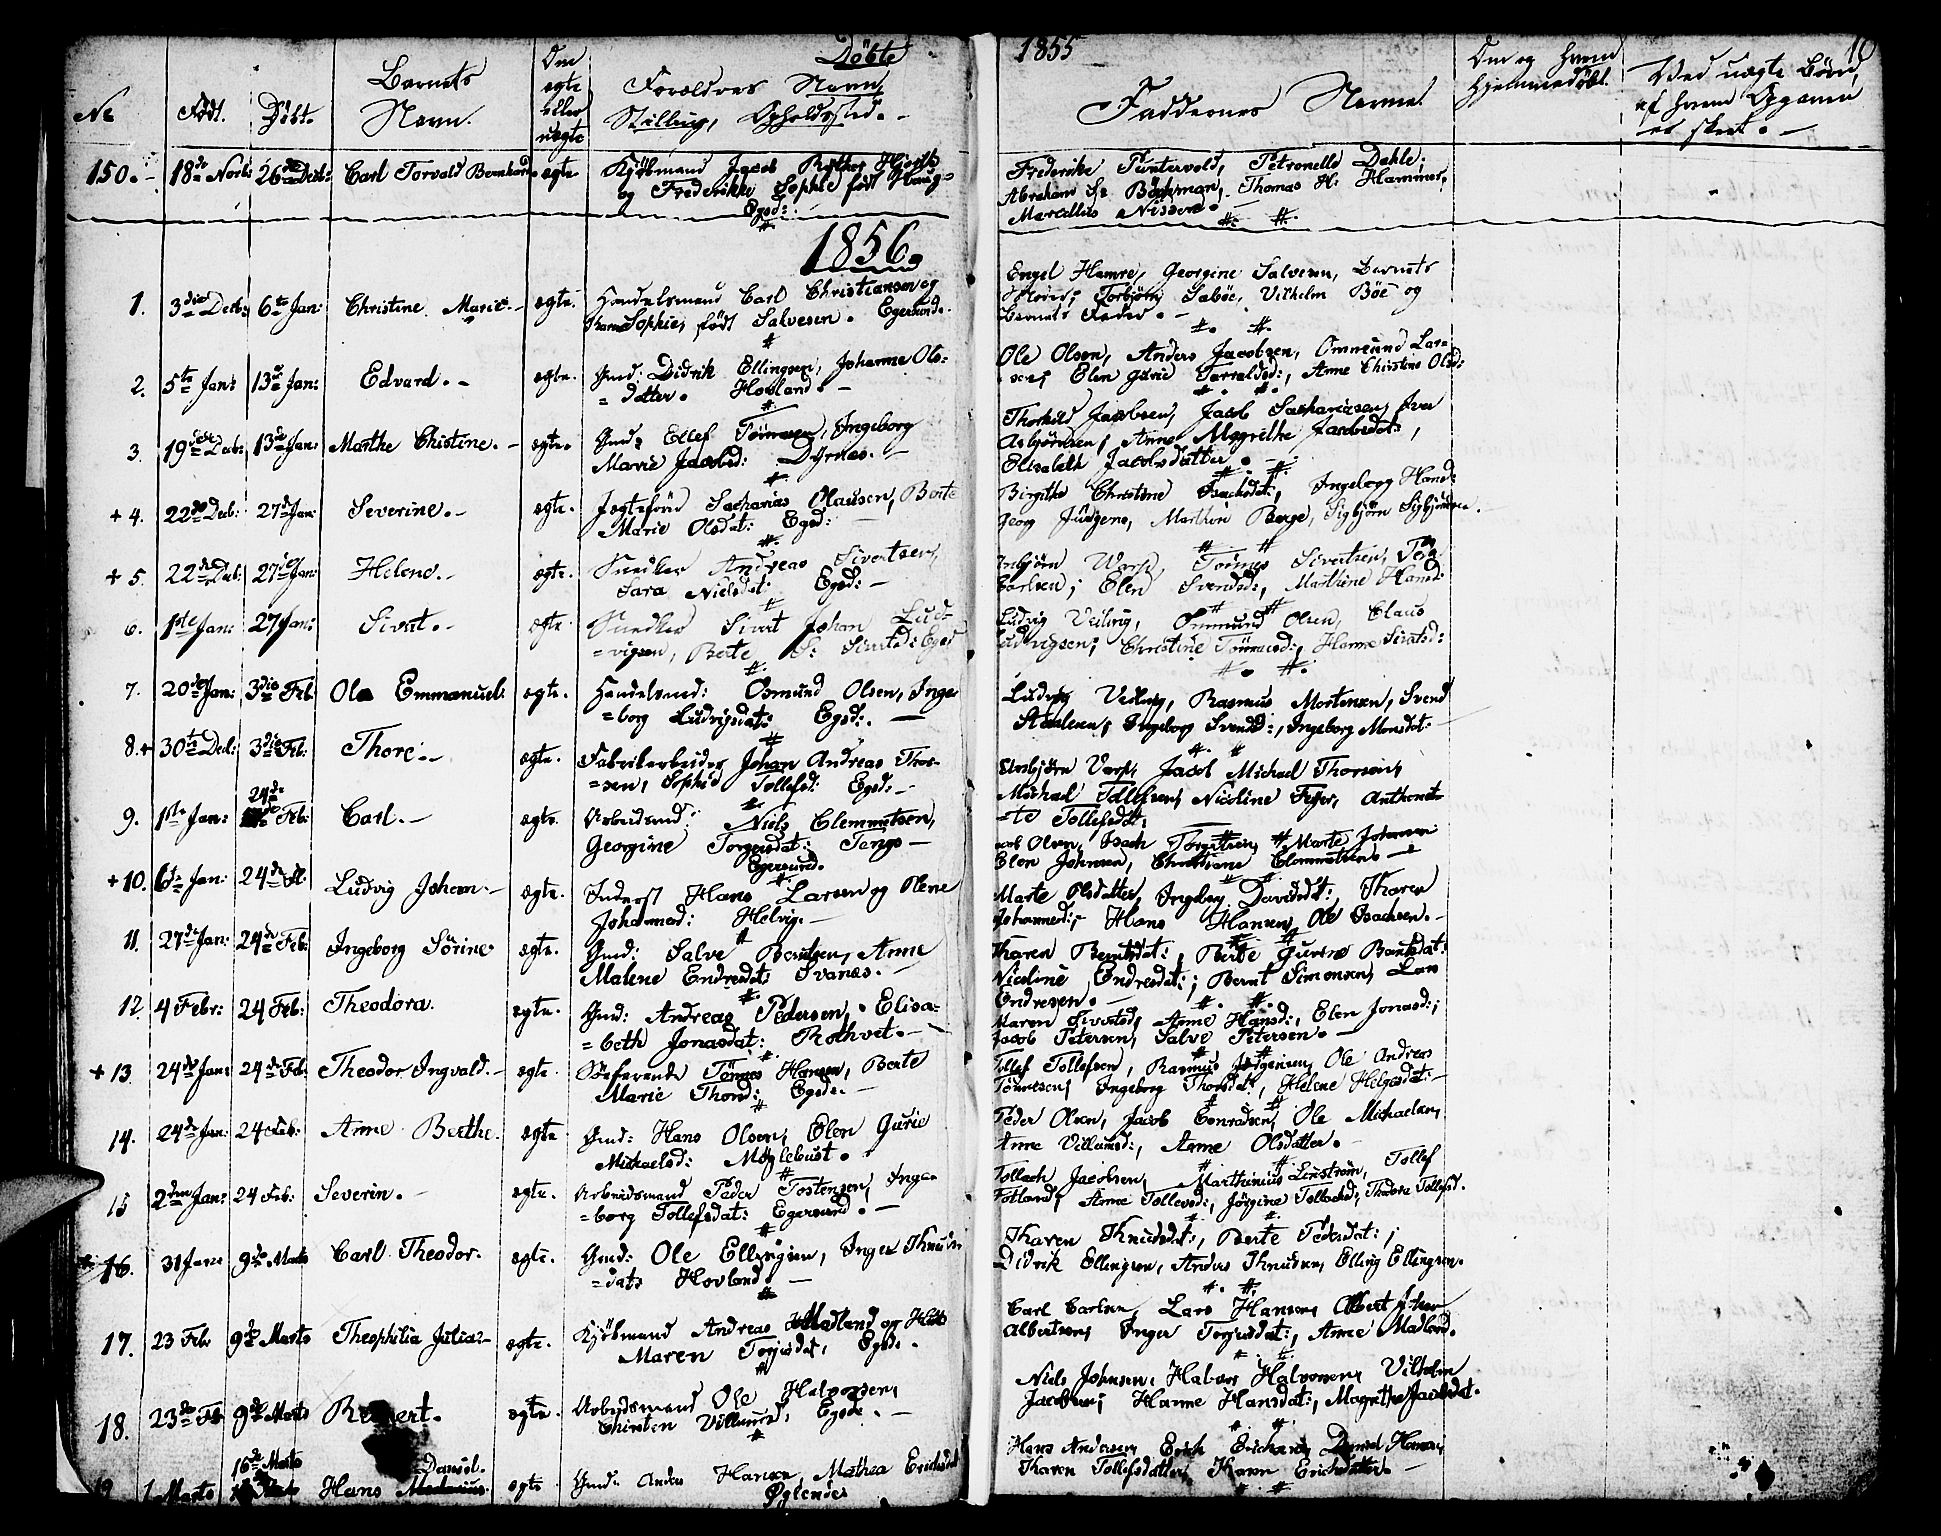 Døbte
1855
10
No
Født.
Døbt.
Barnets
Navn.
Om
egte
eller
uegte
Forældres Navn,
Stilling, Opholdssted. -
Faddernes Navne.
Om og hvem
hjemmedøbt.
Ved uegte Børn,
af hvem Angivn
er skeet. -
150. 18de Novb: 26de Decb: Carl Torvald Bernhard egte Kjøbmand Jacob Rother Hjorth
og Frederikke Sophie født Haug
Egsd:
Frederike Puntervold, Petronelle Dahle,
Abraham Bøckman, Thomas H: Hammer,
Marcellius Nissen. -
1856.
1. 3die Decb: 6te Jan: Christine Marie. - egte. Handelsmand Carl Christiansen og
Sophie, født Salvesen. Egersund.
Engel Hamre, Georgine Salvesen, Barnets
Moder, Torbjørn Sabøe, Vilhelm Bøe og
Barnets Fader. -
2. 5te Jan: 13de Jan: Edvard. - egte. Gmd: Didrik Ellingsen, Johanne Ols=
=datter. Hovland. -
Ole Olsen, Anders Jacobsen, Ommund Lar=
sen, Elen Gurie Tarraldsd:, Anne Christine Olsd:
3. 19de Decb: 13de Jan: Marthe Christine. - egte. Gmd: Ellef Tønnesen, Ingeborg
Marie Jacobsd: Dyrnes. -
Thorkild Jacobsen, Jacob Sachariasen, Iver
Asbjørnsen, Anne Magrethe Jacobsdat:,
Elisabeth Jacobsdatter. -
+ 4. 22de Decb: 27de Jan: Severine. - egte. Jegtefører Sacharias Clausen, Berte
Marie Olsdat: Egsd: -
Birgithe Christine Isachsdat:, Ingeborg Hansd:
Georg Jürgens, Marthin Berge, Sigbjørn Sigbjørnsen.
+ 5. 22de Decb: 27de Jan: Helene. - egte. Snedker Andreas Sivertsen,
Sara Nielsdat: Egsd: -
Torbjørn Varp, Tønnes Sivertsen,
Carlsen; Elen Svendsd:, Marthine Hansd:
6. 1ste Jan: 27 Jan: Sivert. - egte. Snedker Sivert Johan Lud=
=vigsen, Berte S: Sivertsd: Egsd
Ludvig Veiling, Ommund Olsen, Claus
Ludvigsen; Christine Tønnesd:, Hanne Sivertsd:
7. 20de Jan: 3die Feb: Ole Emmanuel: egte. Handelsmd: Osmund Olsen, Inge
=borg Ludvigsdat: Egsd: -
Ludvig Veiling, Rasmus Mortensen, Svend
Ingeborg Svendsd:, Ingeborg Monsdat: -
8. + 30te Decb: 3die Feb: Thore. - egte. Fabrikarbeider Johan Andreas Thor=
=sen, Sophie Tollefsd: Egsd: -
Torbjørn Varp, Jacob Michael Thorsen,
Michael Tollefsen, Nicoline Feyer, Anthonet=
=te Tollefsdtr.
9. 1ste Jan: 24de Feb: Carl. - egte. Arbeidsmd: Niels Clemmetsen,
Georgine Torgersdat: Tengs -
Egersund.
Olsen, Isach Torgersen, Marte Johnsen
Elen Johnsen, Christiane Clemmetsen. -
+ 10. 6te Jan: 24de Fb: Ludvig Johan. - egte. Inderst Hans Larsen og Olene
Johannesd: Helvig. -
Marte Olsdatter, Ingeborg Davidsdt: Tharen
Johannesd; Hans Hansen, Ole Isachsen. -
11. 27de Jan: 24de Feb: Ingeborg Sørine egte. Gmd: Salve Berntsen, Anne
Malene Endresdat: Svanes. -
Tharen Berntsdat:, Berte Gurine Berntsdat:
Nicoline Endresdat:; Bernt Simonsen, Lars
Endresen. -
12. 4 Febr: 24 Feb: Theodora. egte. Gmd: Andreas Pedersen, Elisa=
=beth Jonasdat: Rothvet. -
Maren Sivertsd, Anne Hansd:, Elen Jonasd:;
Jacob Petersen, Salve Petersen. -
+ 13. 24de Jan: 24de Feb: Theodor Ingvald. - egte. Søefarende Tønnes Hansen, Berte
Marie Thorsd: Egsd: -
Tollef Tollefsen, Rasmus Jørgensen, Ole Andreas
Tønnesen, Ingeborg Thorsdat:, Helene Helgesdat: -
14. 24de Jan: 24 Feb: Anne Berthe. egte Gmd: Hans Olsen, Elen Gurie
Michaelsd: Møglebust.
Peder Olsen, Jacob Conradsen, Ole Michaelsen,
Anne Villumsd:, Anne Olsdatter. -
15 2den Jan: 24 Feb: Severin. - egte. Arbeidsmand Peder Tostensen, Inge=
=borg Tollefsdat: Egersund. -
Tollach Jacobsen, Marthinius Linstrøm, Tollef
Fotland, Anne Tollevsd:, Jørgine Tollachsd:, Thodora Tollefsd.
16. 31 Jan: 9de Marts Carl Theodor. egte. Gmd: Ole Ellingsen, Inger Thnuds=
=dats Hovland. -
Tharen Thnudsdat:, Berte Pedersdat:;
Didrik Ellingsen, Anders Thnudsen, Elling Ellingsen.
17. 23 Feb 9de Marts Theophilia Julia: - egte. Kjøbmand Andreas Madland og
Maren Torgersdat, Egsd. -
Carl Carlsen, Lars Hansen, Albert
Albertsen, Inger Torgersdat:, Anne Madland.
18. 23de Feb 9de Marts egte. Arbeidsmand Ole Halvorsen,
Villumsd, Egsd: -
Niels Johnsen, Halvor Halvorsen, Vilhelm
Jacobsen, Hanne Hansdat:, Magrethe Jacobsdat.
19. 1 Marts 16de Marts Hans Daniel. egte Gmd: Anders Hansen, Mathea Erichsdat
Øglende
Hans Andersen, Erich Erichsen, Daniel Hansen,
Karen Tollefsdatter, Karen Erichsdatter. -